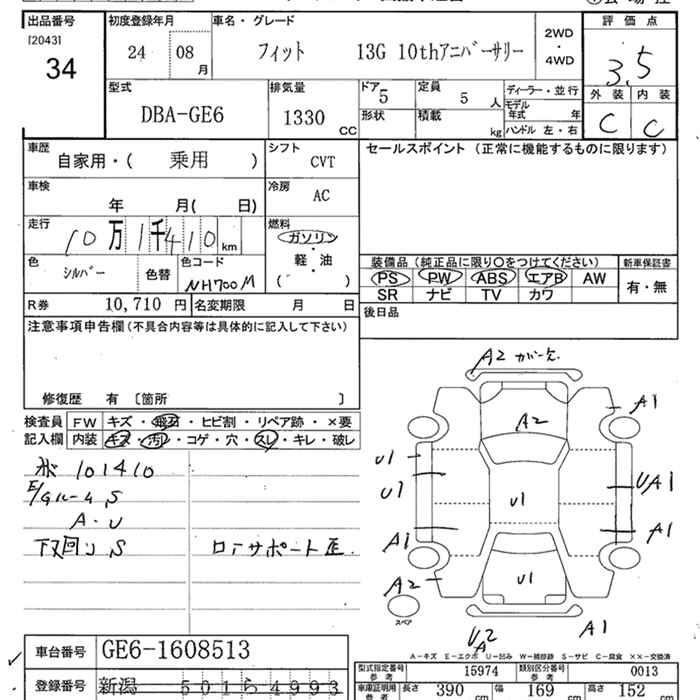 出品番号 初度登録年月 車名・グレード 評価点
[2043] 34
24 08 月
フィット 13G 10thアニバーサリー
2WD ・ 4WD
3.5
型式 DBA-GE6
排気量 1330 CC
ドア 5 定員 5 人
形状 積載 kg
ディーラー・並行
モデル年式 年
ハンドル 左・右
外装 内装
C C
車歴 自家用・( 乗用 )
シフト CVT
セールスポイント (正常に機能するものに限ります)
車検 年 月( 日)
冷房 AC
走行 10万1千410 km
燃料 ガソリン ・ 軽・油 ( )
色 シルバー 色替 色コード NH700M
装備品(純正品に限り〇をつけてください) 新車保証書
PS PW ABS エアB AW
SR ナビ TV カワ
有・無
R券 10,710 円 名変期限 月 日
後日品
注意事項申告欄(不具合内容等は具体的に記入して下さい)
修復歴 有 〔箇所 〕
検査員記入欄
FW キズ・飛石・ヒビ割・リペア跡・×要
内装 キズ・汚レ・コゲ・穴・スレ・キレ・破レ
101410
E/gルームS
A・U
下回りS
ロアサポート歪
A2 ガハ欠
A1
A2
U1
U1
UA1
U1
A1
A1
A2
U1
スペア
UA2
A1
A-キズ E-エクボ U-凹み W-補修跡 S-サビ C-腐食 XX-交換済
車台番号 GE6-1608513
登録番号 新潟 501ら4993
型式指定番号 参考 15974 類別区分番号 参考 0013
車庫証明用 参考 長さ 390 cm 幅 169 cm 高さ 152 cm